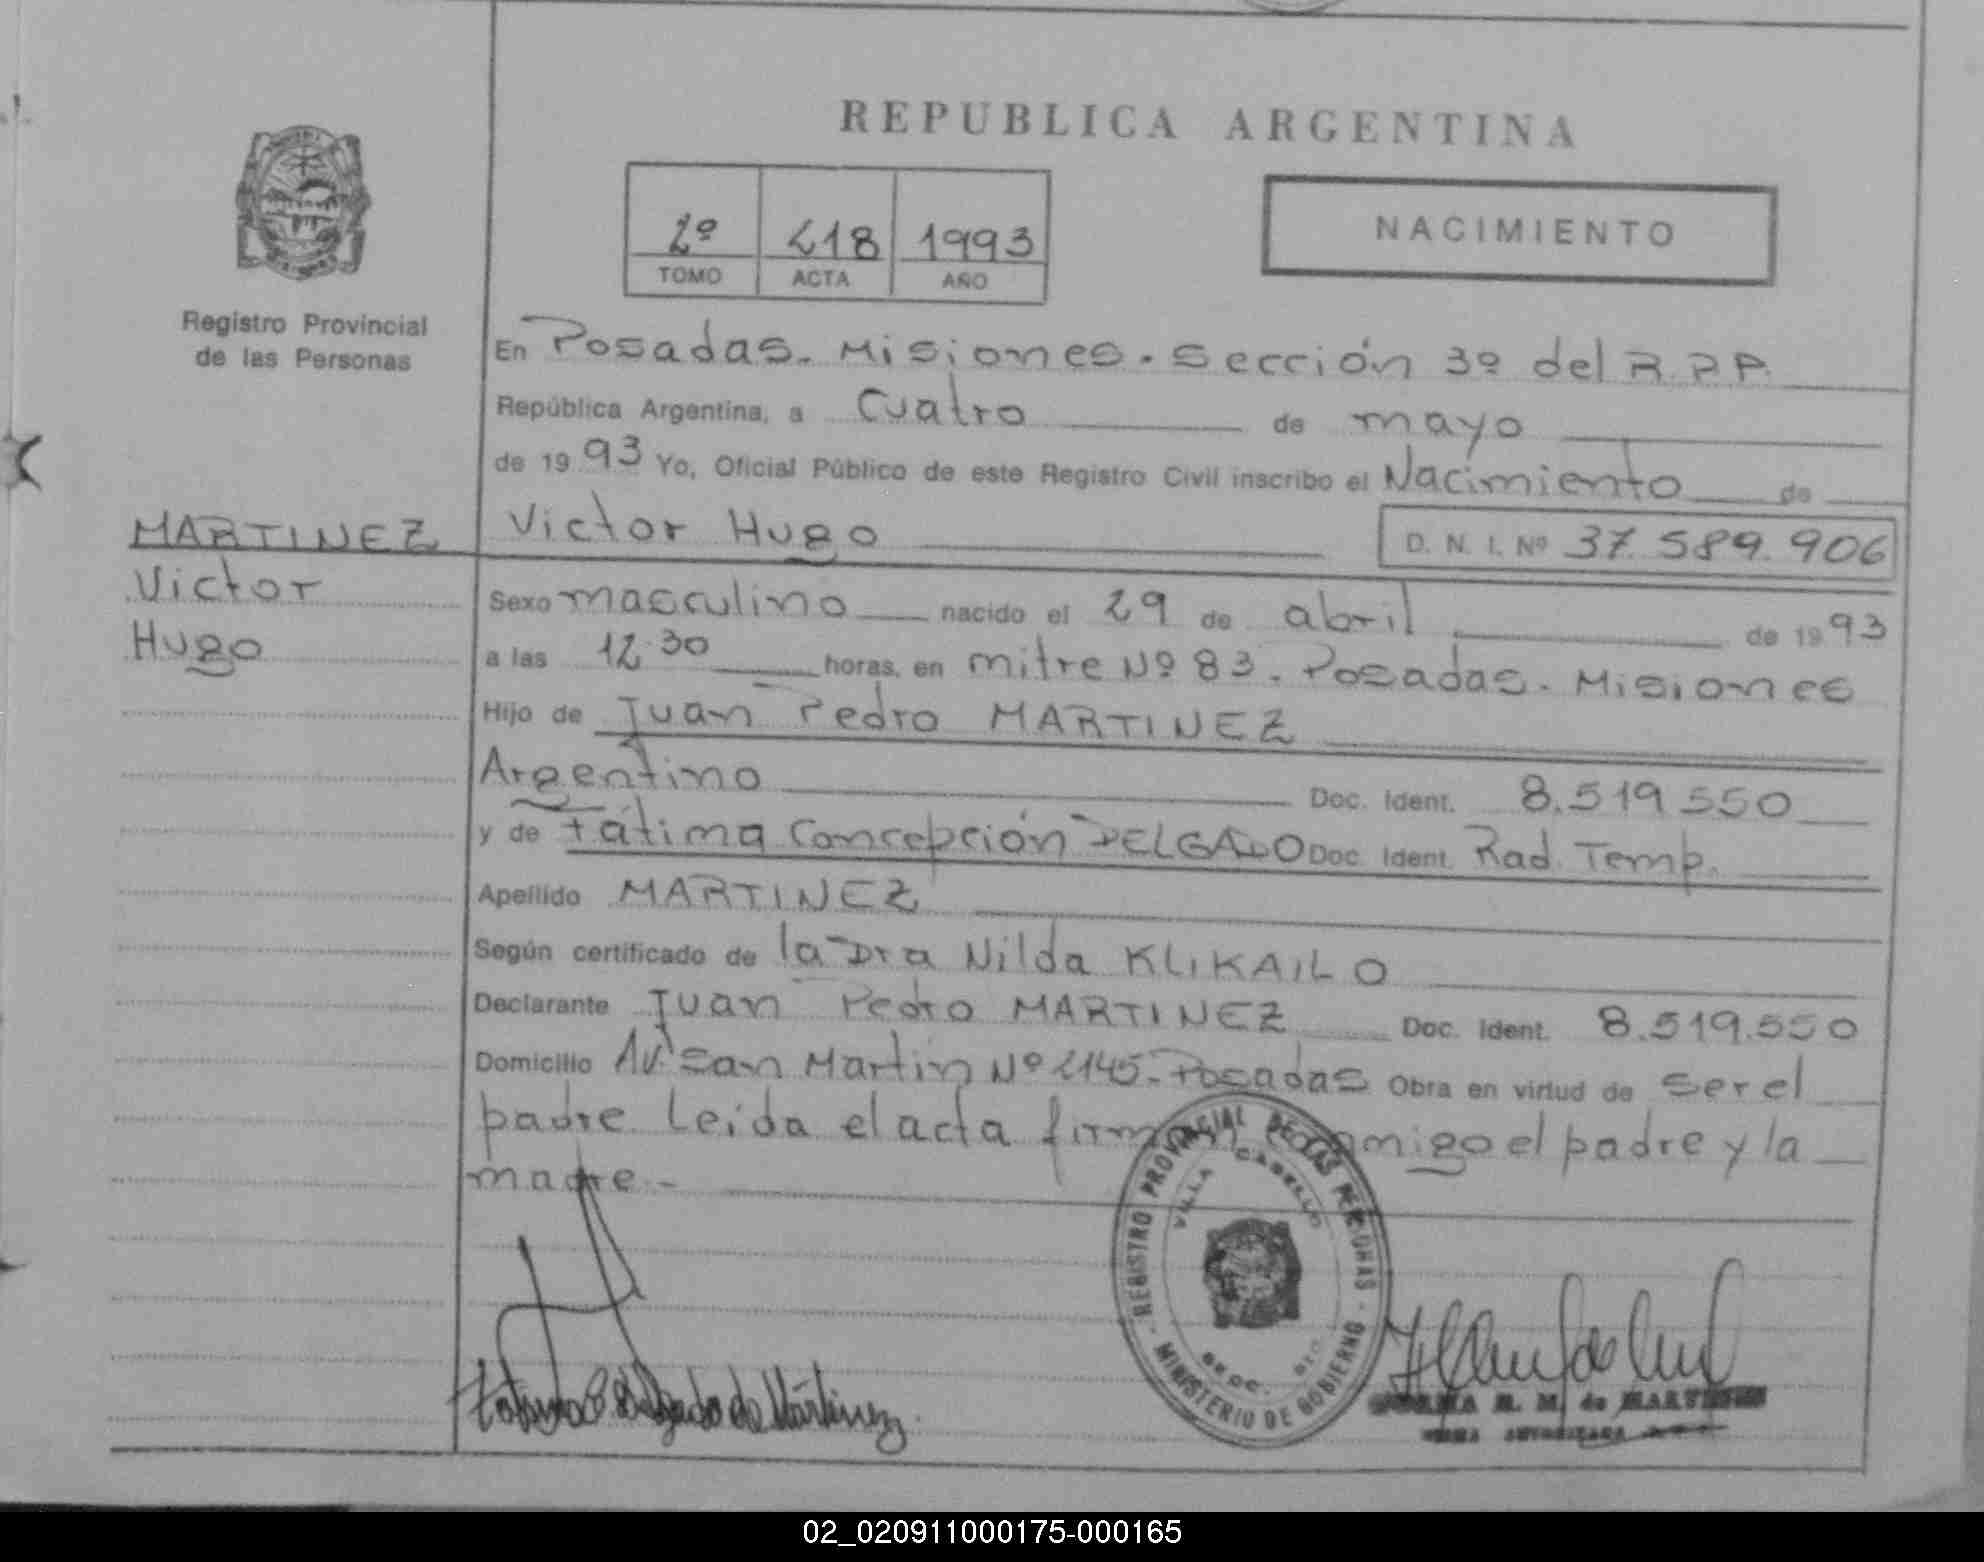 REPUBLICA ARGENTINA
2º 418 1993
TOMO ACTA AÑO
NACIMIENTO
Registro Provincial
de las Personas
En Posadas. Misiones. Sección 3º del R.P.P.
República Argentina, a Cuatro de mayo
de 1993 Yo, Oficial Público de este Registro Civil inscribo el Nacimiento de
MARTINEZ
Victor
Hugo
Victor Hugo D. N. I. Nº 37.589.906
Sexo masculino nacido el 29 de abril de 1993
a las 12.30 horas, en mitre Nº 83. Posadas. Misiones
Hijo de Juan Pedro MARTINEZ
Argentino Doc. Ident. 8.519.550
y de Fátima Concepción DELGADO Doc. Ident. Rad. Temp.
Apellido MARTINEZ
Según certificado de la Dra Nilda KLIKAILO
Declarante Juan Pedro MARTINEZ Doc. Ident. 8.519.550
Domicilio Av. San Martin Nº 2145. Posadas Obra en virtud de ser el
padre. Leida el acta firman conmigo el padre y la
madre.-
REGISTRO PROVINCIAL DE LAS PERSONAS - MINISTERIO DE GOBIERNO -
VILLA CABELLO
Delgado de Martinez
R. M. de MARTINEZ
02_020911000175-000165